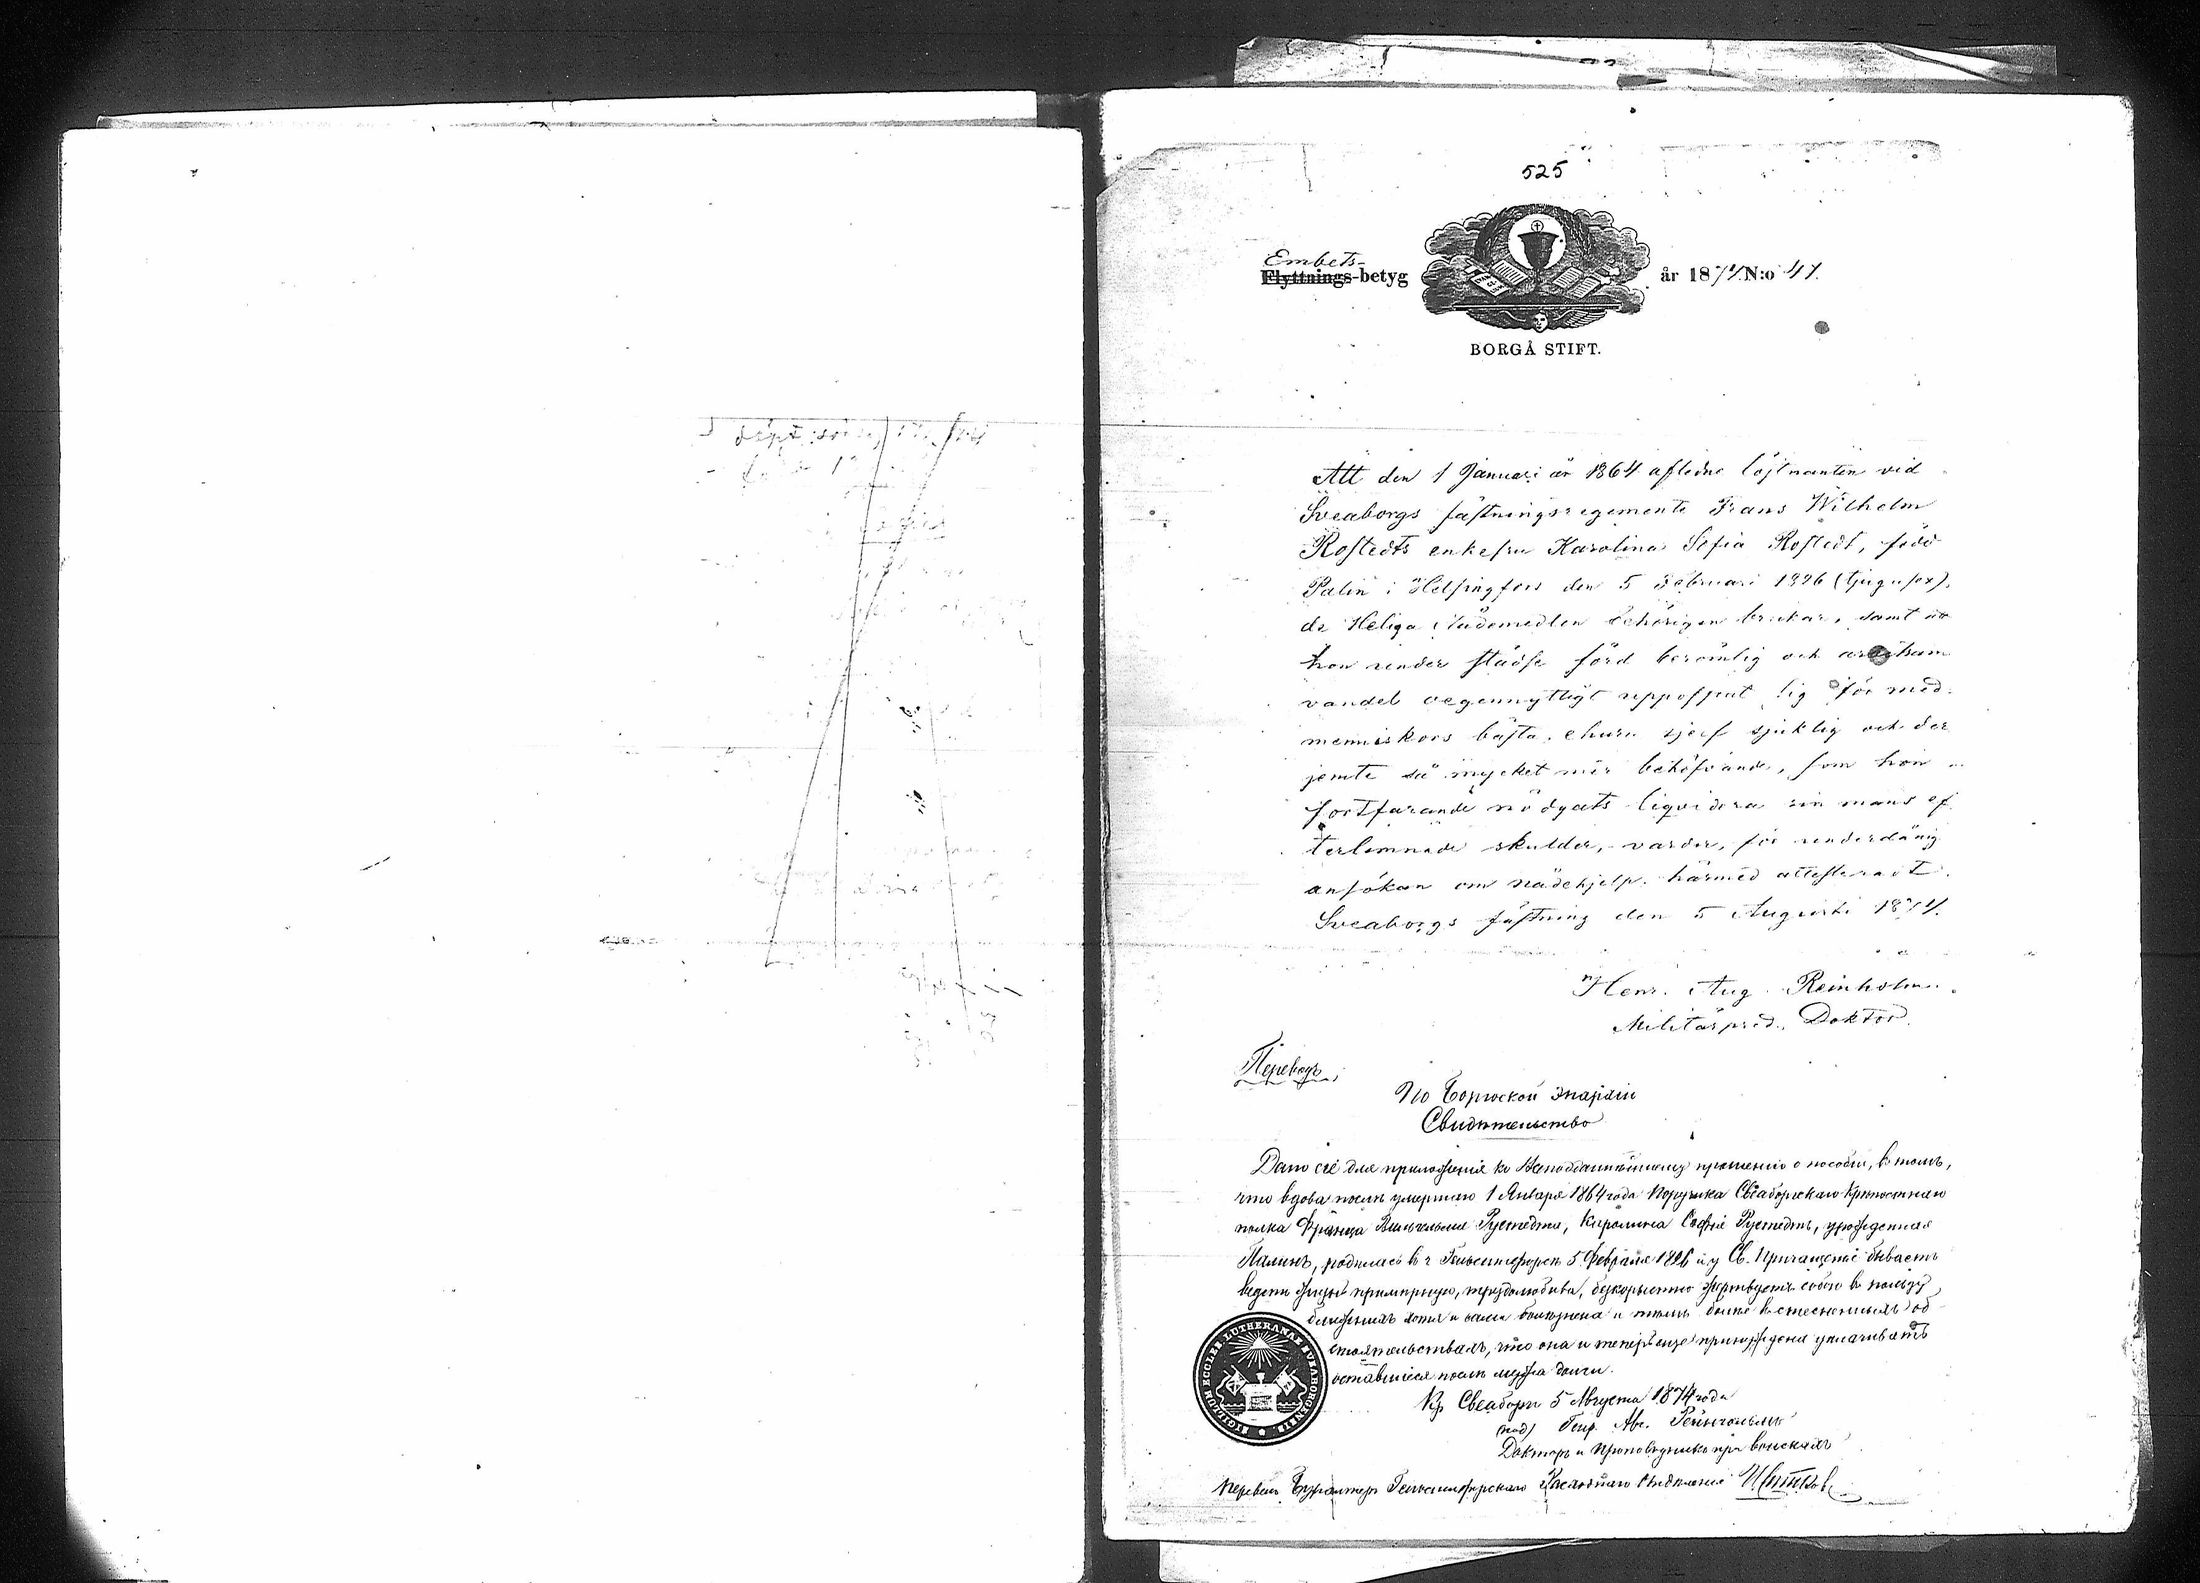 525
Embets-
Flyttnings-betyg
år 1874. N:o 41.
BORGÅ STIFT.
Att den 1 Januari år 1864 aflidne löjtnanten vid
Sveaborgs fästningsregemente Frans Wilhelm
Rostedts enkefru Karolina Sofia Rostedt, född
Palin i Helsingfors den 5 Februari 1826 (tjugusex),
de Heliga Nådemedlen behörigen brukar, samt att
hon under städse förd berömlig och arbetsam
vandel oegennyttigt uppoffrat sig för med-
menniskors bästa, ehuru sjelf sjuklig och der
jemte så mycket mer behöfvande, som hon
fortfarande nödgats liqvidera sin mans ef
terlemnade skulder, varder, för underdånig
ansökan om nådehjelp, härmed attesteradt.
Sveaborgs fästning den 5 Augusti 1874.
Henr. Aug. Reinholm.
Militärpred., Doktor.
Переводъ
По Боргоской Эпархіи
Свидѣтельство
Дано сіе для приложенія къ Всеподданнѣйшему прошенію о пособіи, въ томъ,
что вдова послѣ умершаго 1 Января 1864 года Поручика Свеаборгскаго Крѣпостнаго
полка Франца Вильгельма Рустедта, Каролина Софія Рустедтъ, урожденная
Палинъ, родилась въ г. Гельсингфорсѣ 5 Февраля 1826 и у Св. Причащенія бываетъ
ведетъ жизнь примѣрную, трудолюбива, безкорыстно жертвуетъ собою въ пользу
ближнихъ хотя и сама болѣзнена и тѣмъ болѣе въ стесненныхъ об
стоятельствахъ, что она и теперь еще принуждена уплачивать
оставшіеся послѣ мужа долги.
Кр. Свеаборгъ 5 Августа 1874 года
(под) Генр. Авг. Рейнгольмъ
Докторъ и Проповѣдникъ при войскахъ
Перевелъ Бухгалтеръ Гельсингфорскаго Отдѣленія
SIGILLUM ECCLES. LUTHERANAE SVEABORGENSIS